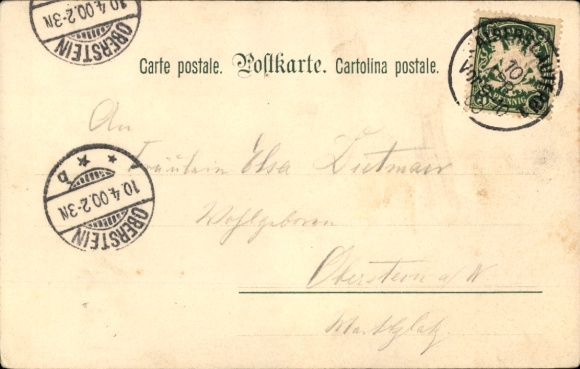 OBERSTEIN
10.4.00.2-3N
Carte postale. Postkarte. Cartolina postale.
10
PFENNIG
An
Fräulein Elsa Dietmair
Wohlgeboren
Oberstein a/N
Marktplatz.
OBERSTEIN
10.4.00.2-3N
b